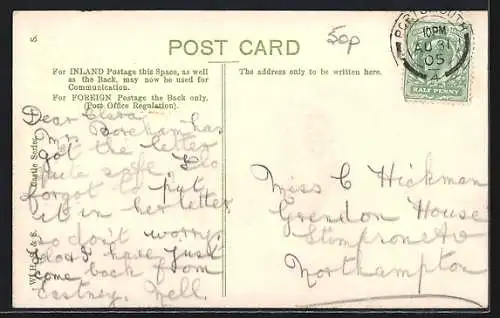 50p
POST CARD
PORTSMOUTH
10PM
AU 31
05
HALF PENNY
S.
For INLAND Postage this Space, as well
as the Back, may now be used for
Communication.
For FOREIGN Postage the Back only.
(Post Office Regulation).
The address only to be written here.
Castle Series
Dear Clara
Mr. Boreham has
got the letter
quite safe.
forgot to put
it in her letter
so don't worry
I have just
come back from
Eastney. Nell.
Miss C Hickman
Grendon House
Northampton